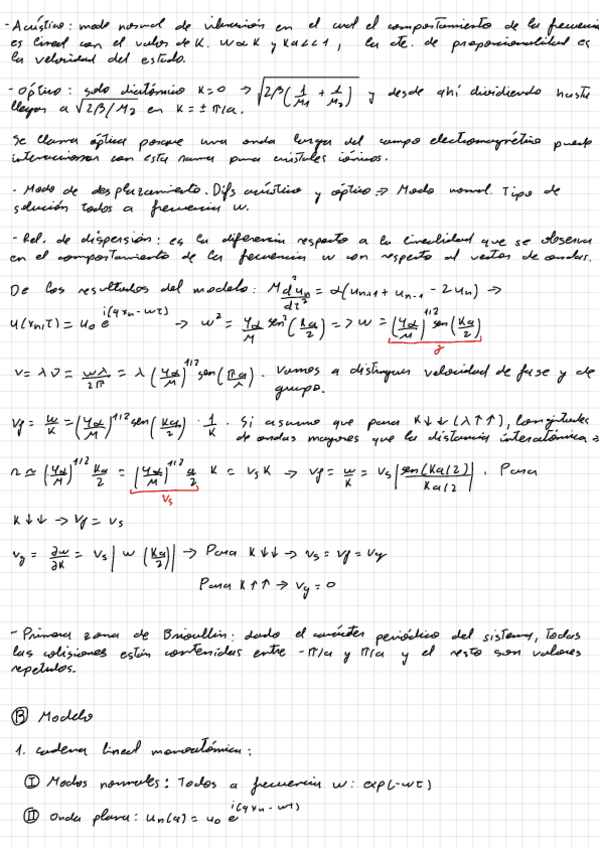 - Acústico: modo normal de vibración en el cual el comportamiento de la frecuencia
es lineal con el valor de K. W α K y Ka<<1, la cte. de proporcionalidad es
la velocidad del
- Óptico: solo diatómico K=0 → √(2β(1/M₁ + 1/M₂)) y desde ahí dividiendo hasta
llegar a √(2β/M₂) en K = ± π/a.
Se llama óptica porque una onda larga del campo electromagnético puede
interaccionar con esta rama para cristales iónicos.
- Modo de desplazamiento. Difs acústico y óptico ⇒ Modo normal. Tipo de
solución todos a frecuencia w.
- Rel. de dispersión: es la diferencia respecto a la linealidad que se observa
en el comportamiento de la frecuencia w con respecto al vector de ondas.
De los resultados del modelo: M d²uₙ/dt² = α(uₙ₊₁ + uₙ₋₁ - 2uₙ) →
u(xₙ,t) = u₀ e^i(qxₙ-wt) → w² = 4α/M sen²(Ka/2) => w = (4α/M)^1/2 sen(Ka/2)
v = λν = wλ/2π = λ(4α/M)^1/2 sen(πa/λ). Vamos a distinguir velocidad de fase y de
grupo.
Vf = w/K = (4α/M)^1/2 sen(Ka/2) · 1/K. Si asumo que para K↓↓ (λ↑↑), longitudes
de ondas mayores que la distancia interatómica ⇒
≃ (4α/M)^1/2 Ka/2 = (4α/M)^1/2 a/2 K = Vs K → Vf = w/K = Vs |sen(Ka/2)/Ka/2|. Para
Vs
K↓↓ → Vf = Vs
Vg = ∂w/∂K = Vs | (Ka/2)| → Para K↓↓ → Vs = Vf = Vg
Para K↑↑ → Vg = 0
- Primera zona de Brioullin: dado el carácter periódico del sistema, todas
las colisiones están contenidas entre -π/a y π/a y el resto son valores
repetidos.
Ⓑ Modelo
1. cadena lineal monoatómica:
Ⓘ Modos normales: Todos a frecuencia w: exp(-wt)
Ⓘ Onda plana: uₙ(q) = u₀ e^i(qxₙ-wt)